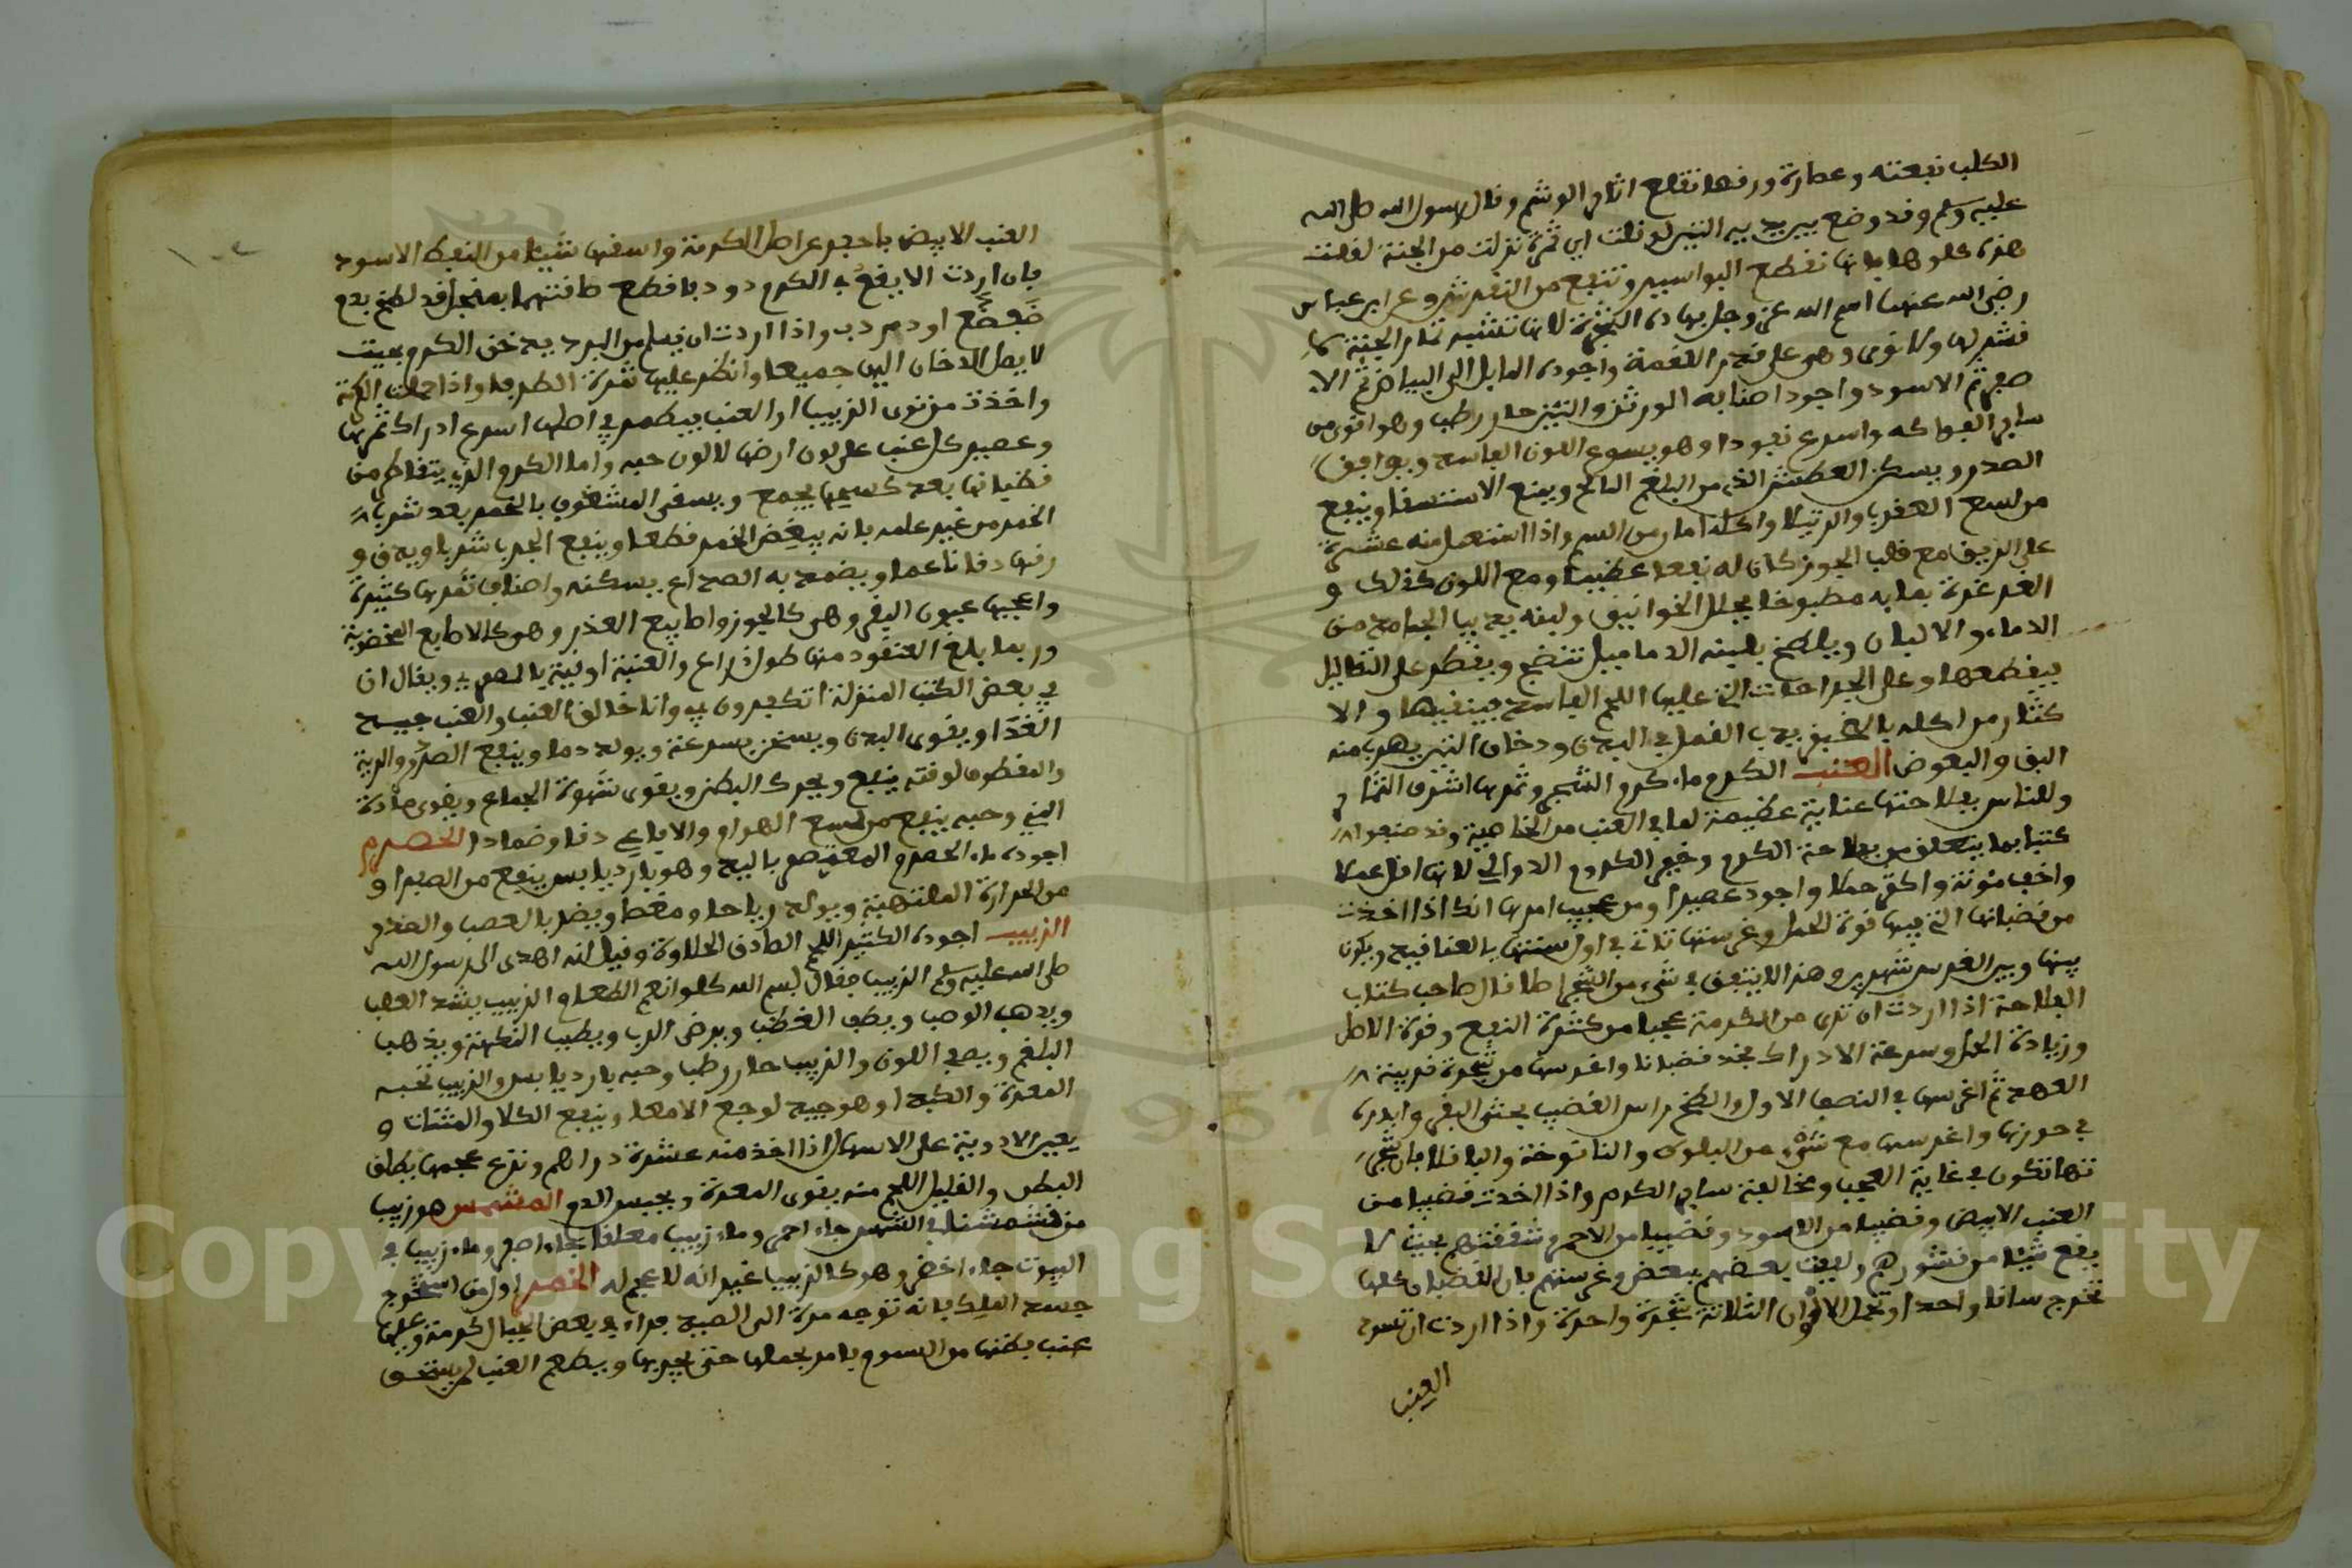 الكلب نفعته وعصارة ورقها تقلع اثار الوشم وقال رسول الله صلى الله
عليه وسلم وقد وضع بين يديه التين لو قلت اي ثمرة نزلت من الجنة لقلت
هذه كلوها فانها تقطع البواسير وتنفع من النقرس وعن ابن عباس
رضي الله عنهما اسم الله عز وجل بهاده الشجرة لانها تشبه ثمار الجنة لا
قشر لها ولا نوى وهي على قدر اللقمة واجوده المايل الى البياض ثم الا
صفر ثم الاسود واجود اصنافه الوزشن والتين حار رطب وهو اقوى من
ساير الفواكه واسرع نفودا وهو يسوع اللون الفاسد ويوافق
الصدر ويسكن العطش الذي من البلغم المالح ويمنع الاستسقا وينفع
من لسع العقرب والرتيلا واكله امان من السم واذا استعمل منه عشرة
على الريق مع قلب الجوز كان له نفعا عظيما ومع اللوز كذلك و
الغرغرة بمايه مطبوخا يحلل الخوانيق ولبنه يذيب الجامد من
الدماء والالبان ويلطخ بلبنه الدماميل تنضج ويقطر على الثااليل
فيقطعها وعلى الجراحات التي عليها اللحم الفاسد فينقيها والا
كثار من اكله بالخبز يورث القمل في البدن ودخان التين يهرب منه
البق والبعوض العنب الكرم ماء كرم الشجر وثمرها اشرف الثمار
وللناس بفلاحتها عناية عظيمة لما في العنب من الخاصية وقد صنعوا
كتبا بما يتعلق من فلاحة الكرم وخير الكروم الدوالي لانها اقل عملا
واخف مئونة واكثر حملا واجود عصيرا ومن عجيب امرها انك اذا اخذت
من قضبانها التي فيها قوة الحمل وغرستها تاتي في اول سنتها بالعناقيد ويكون
بينها وبين الغرس شهرين وهذا لا يتفق في شيء من الشجر اصلا قال صاحب كتاب
الفلاحة اذا اردت ان ترى من الكرمة عجبا من كثرة النفع وقوة الاصل
وزيادة الحمل وسرعة الادراك فخذ قضبانا واغرسها من شجرة قريبة
العهد ثم اغرسها في النصف الاول والطخ راس القضيب بخثي البقر وابدره
في حوزتها واغرسها مع شيء من البلوط والنانوخة والباقلا فان شجر
تها تكون في غاية العجب ومخالفة ساير الكرم واذا اخدت قضيبا من
العنب الابيض وقضيبا من الاسود وقضيبا من الاحمر وشققتهم بحيث لا
يقع شيئا من قشورهم ولففت بعضهم ببعض وغرستهم فان القضبان كلها
تخرج ساقا واحدا وتحمل الالوان الثلاثة شجرة واحدة واذا اردت ان تسود
العنب
العنب الابيض فاحفر عن اصل الكرمة واسقها شيئا من النفط الاسود
فان اردت الا يقع في الكرم دود فاقطع طاقتها بمنجل قد لطخ بدم
ضفضع او دم دب واذا اردت ان يسلم من البرد فدخن الكرم بحيث
لا يصل الدخان اليها جميعا وانظر عليها ثمرة الطرفا واذا حملت الكرمة
واخذت من نوى الزبيب او العنب فيطمر في اصلها اسرع ادراك ثمرها
وعصير كل عنب على لون ارضها لا لون حبه واما الكرم الذي يتقاطر من
قضبانها بعد كسحها يجمع ويسقى المشغوف بالخمر بعد شرب
الخمر من غير علمه فانه يبغض الخمر قطعا وينفع الجرب شربا ويدق و
رقها دقا ناعما ويضمد به الصداع يسكنه واصناف ثمرها كثيرة
واعجبها عيون البقر وهي كالجوز واصابيع العذر وهو كالاصابع المخضوبة
وربما بلغ العنقود منها طول ذراع والعنبة اوقية بالمصري ويقال ان
في بعض الكتب المنزلة اتكفرون بي وانا خالق العنب والعنب جيد
الغذا ويقوى البدن ويسخن بسرعة ويولد دما وينفع الصدر والرية
والمقطوف لوقته ينفع ويحرك البطن ويقوى شهوة الجماع ويقوى مادة
المني وحبه ينفع من لسع الهوام والافاعي دقا وضمادا الحصرم
اجوده ماء الحصرم المعتصر باليد وهو بارد يابس ينفع من الصفرا و
من الحرارة الملتهبة ويولد رياحا ومغصا ويضر بالعصب والصدر
الزبيب اجوده الكثير اللحم الصادق الحلاوة وقيل انه اهدى الى رسول الله
صلى الله عليه وسلم الزبيب فقال بسم الله كلوا نعم الطعام الزبيب يشد العصب
ويذهب الوصب ويطف الغضب ويرضى الرب ويطيب النكهة ويذهب
البلغم ويصفي اللون والزبيب حار رطب وحبه بارد يابس والزبيب تحبه
المعدة والكبد وهو جيد لوجع الامعا وينفع الكلا والمثانة و
يعين الادوية على الاسهال اذا اخذ منه عشرة دراهم ونزع عجمها يطلق
البطن والقليل اللحم منه يقوى المعدة ويحبس الدم المشمس هو زبيب
من قشمش في الشمس جاء احمر وماء زبيب معلقا جاء اصفر وماء زبيب في
البيوت جاء اخضر وهو كالزبيب غير انه لا عجم له الخمر اول من استخرج
جمشد الملك فانه توجه مرة الى الصيد فراى في بعض الجبال كرمة وعليها
عنب يظنها من السموم فامر بحملها حتى يجربها ويطعم العنب لمن يستحق